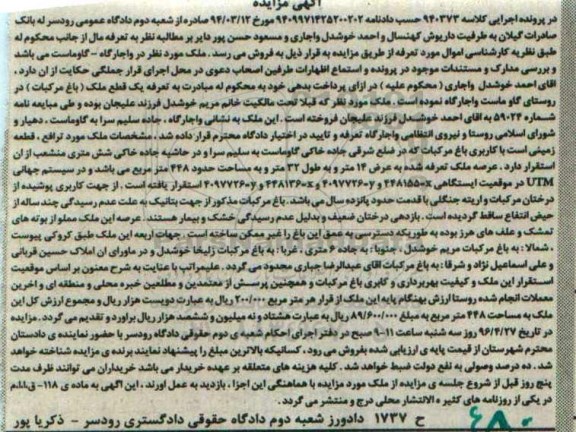 آگهی مزایده
در پرونده اجرایی کلاسه ۹۴۰۳۷۳ حسب دادنامه ۹۴۰۹۹۷۱۴۲۵۲۰۰۲۰۲ مورخ ۹۴/۰۳/۱۲ صادره از شعبه دوم دادگاه عمومی رودسر له بانک
صادرات گیلان به طرفیت داریوش کهنسال و احمد خوشدل واجاری و مسعود حسن پور دایر بر مطالبه نظر به تعرفه مال از جانب محکوم له
طبق نظریه کارشناسی اموال مورد تعرفه از طریق مزایده به قرار ذیل به فروش می رسد. ملک مورد نظر در واجارگاه - گاوماست می باشد
و بررسی مدارک و مستندات موجود در پرونده و استماع اظهارات طرفین اصحاب دعوی در محل اجرای قرار جملگی حکایت از آن دارد.
اقای احمد خوشدل واجاری (محکوم علیه) در ازای پرداخت بدهی خود به محکوم له مبادرت به تعرفه یک قطع ملک (باغ مرکبات) در
روستای گاو ماست واجارگاه نموده است. ملک مورد نظر که قبلا تحت مالکیت خانم مریم خوشدل فرزند علیجان بوده و طی مبایعه نامه
شماره ۵۹۰۲۴ به اقای احمد خوشدل فرزند علیجان فروخته است. این ملک به نشانی واجارگاه، جاده سلیم سرا به گاوماست، دهیار و
شورای اسلامی روستا و نیروی انتظامی واجارگاه تعرفه و تایید در اختیار دادگاه محترم قرار داده شد. مشخصات ملک مورد ترافع، قطعه
زمینی است با کاربری باغ مرکبات که در ضلع شرقی جاده خاکی گاوماست به سلیم سرا و در حاشیه جاده خاکی شش متری منشعب از ان
استقرار دارد. عرصه ملک تعرفه شده به عرض ۱۴ متر و به طول ۳۲ متر و به مساحت حدود ۴۴۸ متر مربع می باشد و در سیستم جهانی
UTM در موقعیت ایستگاهی x=۴۴۸۱۵۵ y=۴۰۹۷۷۲۶ و x=۴۴۸۱۳۶ y=۴۰۹۷۷۲۶ استقرار یافته است. از جهت کاربری پوشیده از
درختان مرکبات و اریته جنگلی با قدمت حدود پانزده سال می باشد. باغ مرکبات مذکور از جهت بتانیک به علت عدم رسیدگی چند ساله از
حیض انتفاع ساقط گردیده است. بازدهی درختان ضعیف و بدلیل عدم رسیدگی خشک و بیمار هستند. عرصه این ملک مملو از بوته های
تمشک و علف های هرز بوده به طوریکه دسترسی به عمق این باغ را غیر ممکن ساخته است. جهات اربعه این ملک طبق کروکی پیوست
، شمالا: به باغ مرکبات مریم خوشدل، جنوبا: به جاده ۶ متری، غربا: به باغ مرکبات زلیخا خوشدل و در ماورای ان املاک حسین قربانی
و علی اسماعیل نژاد و شرقا: به باغ مرکبات آقای عبدالرضا جباری محدود می گردد. علیمراتب با عنایت به شرح معنون بر اساس موقعیت
استقرار این ملک و کیفیت بهره‌برداری و کابری باغ مرکبات و همچنین پرسش از معتمدین و مطلعین خبره محلی و منطقه ای و اخرین
معاملات انجام شده روستا ارزش بهنگام پایه این ملک از قرار هر متر مربع ۲۰۰/۰۰۰ ریال به عبارت دویست هزار ریال و مجموع ارزش کل این
ملک به مساحت ۴۴۸ متر مربع به مبلغ ۸۹/۶۰۰/۰۰۰ ریال به عبارت هشتاد و نه میلیون و ششصد هزار ریال براورد و تقدیم می گردد. مزایده
در تاریخ ۹۶/۴/۲۷ روز سه شنبه ساعت ۱۱-۹ صبح در دفتر اجرای احکام شعبه ی دوم حقوقی دادگاه رودسر با حضور نماینده ی دادستان
محترم شهرستان از قیمت پایه ی ارزیابی شده بفروش می رود. کسانیکه بالاترین مبلغ را پیشنهاد نمایند برنده ی مزایده شناخته خواهد
شد. ده درصد وصولی به نفع دولت ضبط خواهد شد. کلیه هزینه های متعلقه بر عهده خریدار می باشد خریداران می توانند ظرف مدت
پنج روز قبل از شروع جلسه ی مزایده از ملک مورد مزایده با هماهنگی این اجرا، بازدید به عمل اورند. این آگهی به ماده ی ۱۱۸- ق.ا.ا.م
در یکی از روزنامه های کثیر ه الانتشار محلی درج و منتشر می گردد.
ح ۱۷۳۷ دادورز شعبه دوم دادگاه حقوقی دادگستری رودسر - ذکریا پور